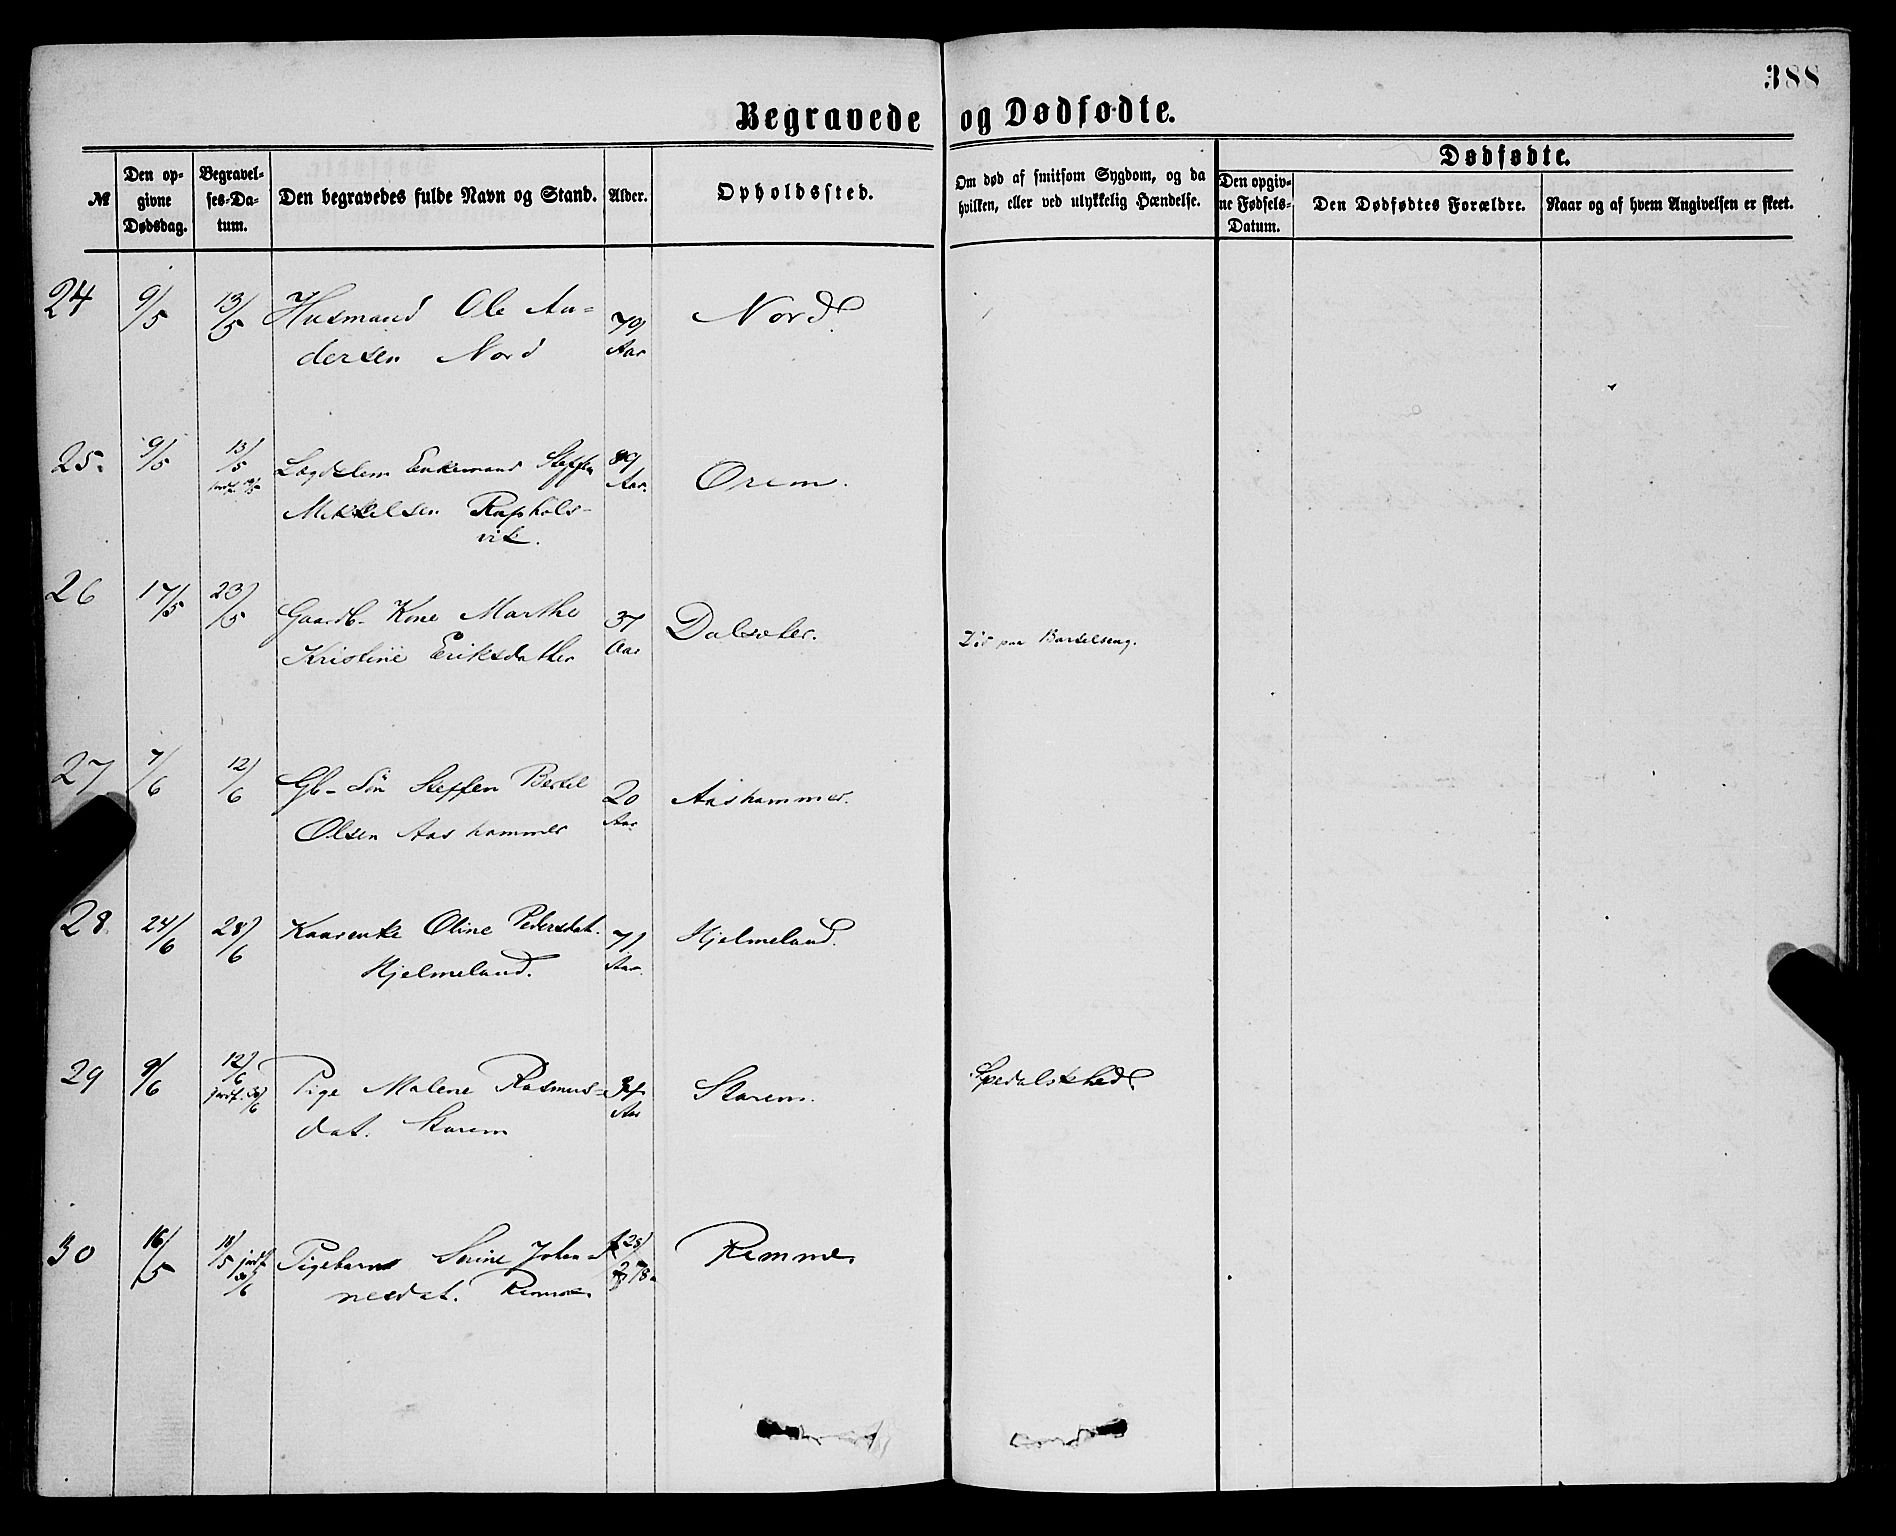 388
Begravede og Dødfødte.
№
Den op-
givne
Dødsdag.
Begravel-
ses-Da-
tum.
Den begravedes fulde Navn og Stand.
Alder.
Opholdssted.
Om død af smitsom Sygdom, og da
hvilken, eller ved ulykkelig Hændelse.
Dødfødte.
Den opgiv-
ne Fødsels-
Datum.
Den Dødfødtes Forældre.
Naar og af hvem Angivelsen er skeet.
24 9/5 13/5 Husmand Ole An-
dersen Nord
79
Aar
Nord.
25. 9/5 13/5
Lægdslem Enkemand Steffen
Mikkelsen Raphols-
vik.
89
Aar.
Orem.
26 17/5 23/5 Gaardb. Kone Marthe
Kristine Eriksdatter
37
Aar
Dalsæter.
Død paa Barselseng.
27 7/6 12/6 Gb- Søn Steffen Bertel
Olsen Aashammer
20
Aar
Aashammer.
28 24/6 28/6 Kaarenke Oline Pedersdat.
Hjelmeland.
71
Aar.
Hjelmeland.
29 9/6 12/6
jordf. /6
Pige Malene Rasmus-
dat. Starem
34
Aar
Starem.
Spedalskhed.
30 16/5 18/5 jordf.
/6
Pigebarn Serine Johan-
nesdat. Remme
Remme